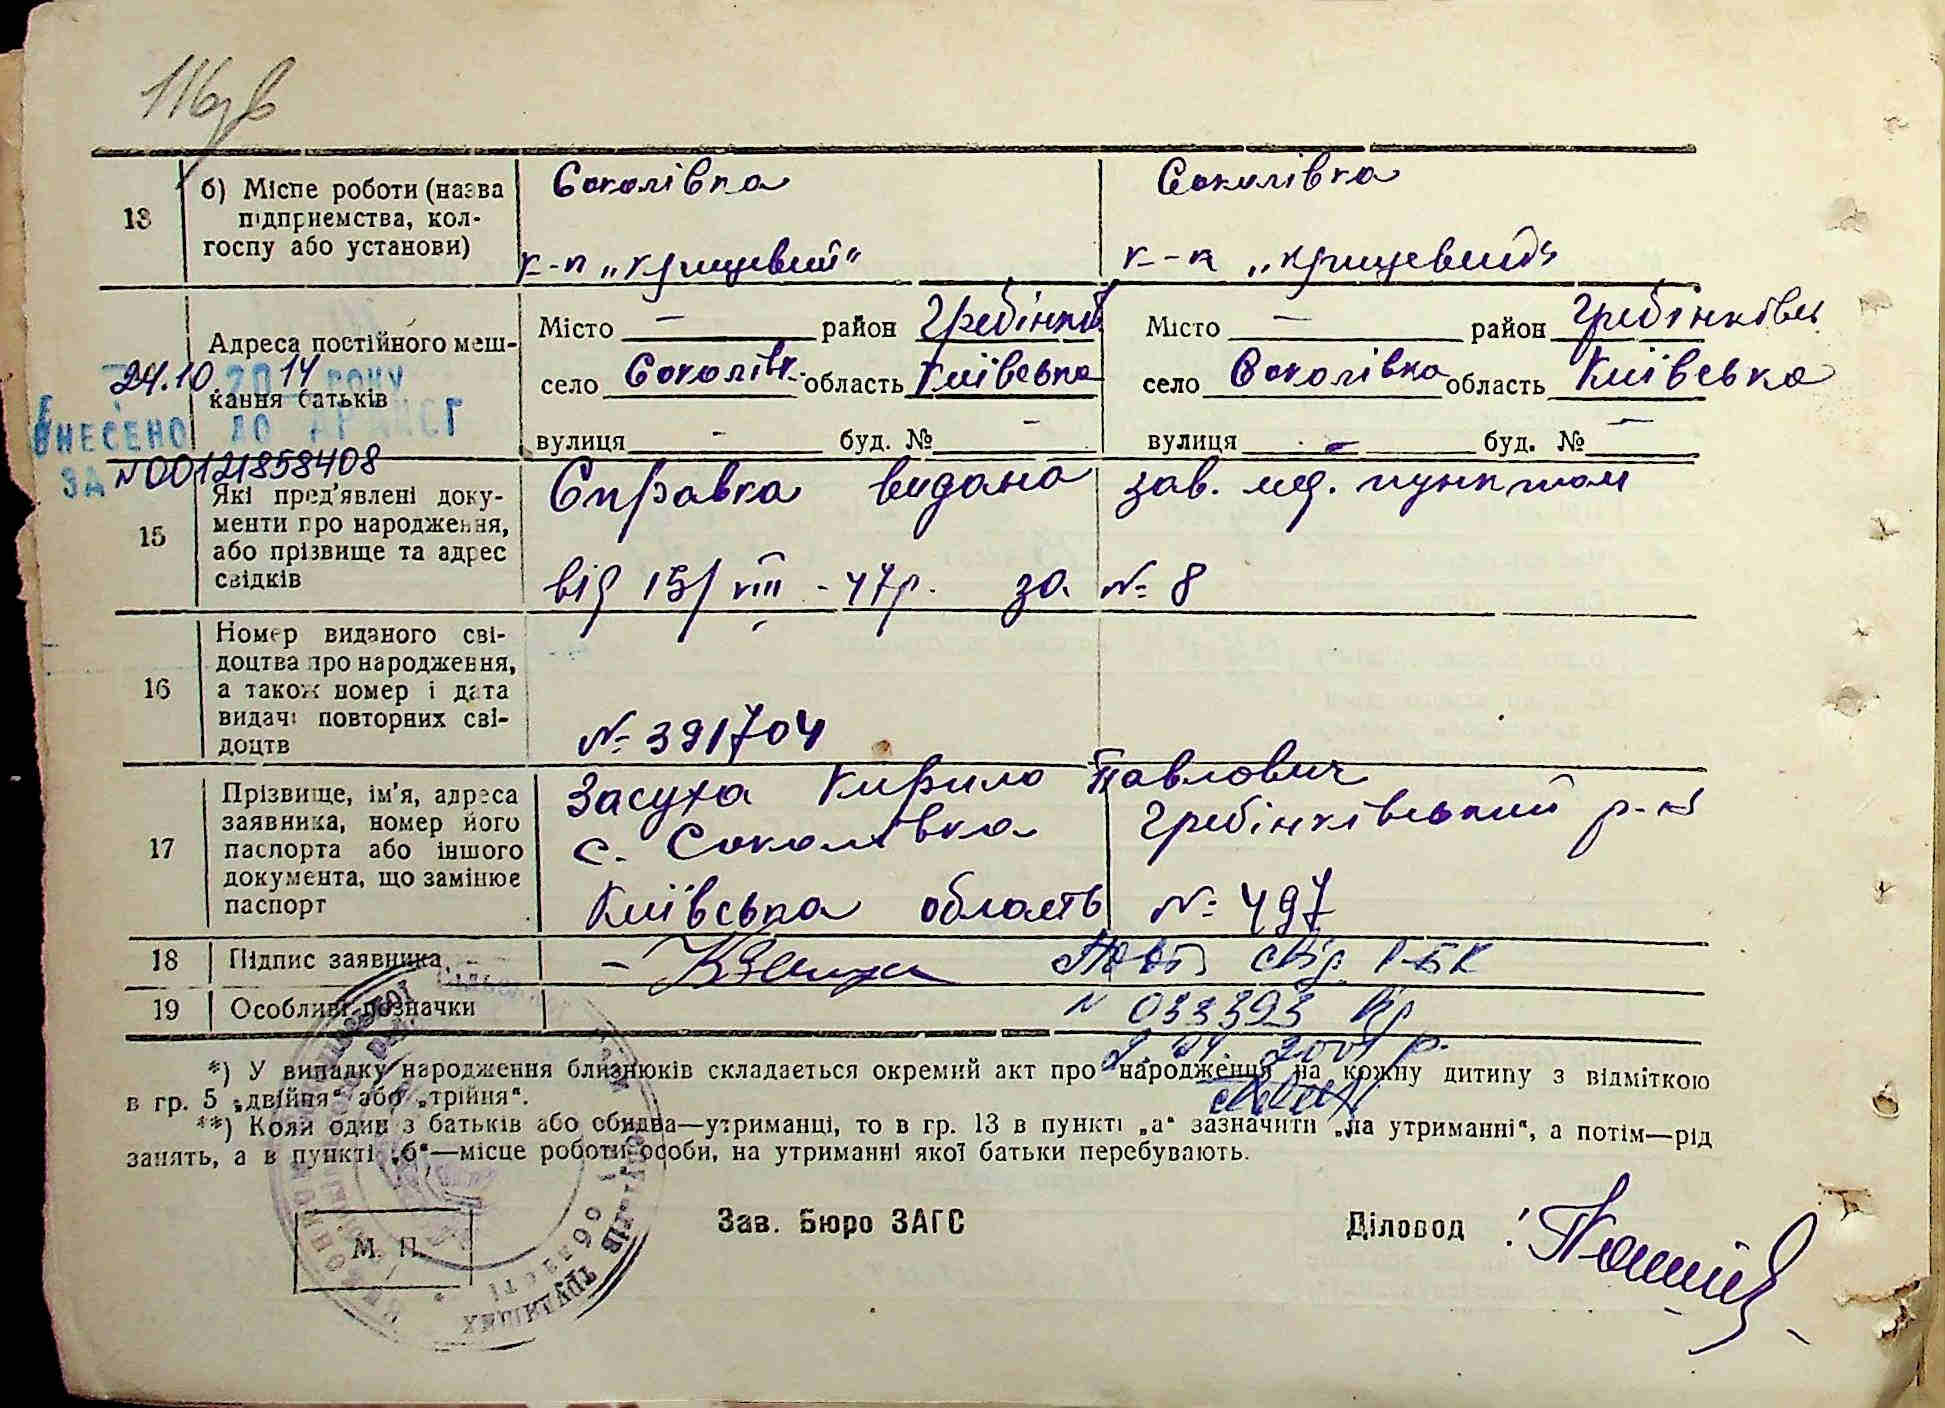 116зв
13
б) Місце роботи (назва
підприємства, кол-
госпу або установи)
Соколівка
к-п „крищевий“
Соколівка
к-п „крищевий“
Адреса постійного меш-
кання батьків
24.10 2014 РОКУ
ВНЕСЕНО ДО ДРАЦСГ
ЗА №00121858408
Місто — район Гребінків
село Соколівк. область Київська
вулиця - буд. № -
Місто — район Гребінківсь
село Соколівка область Київська
вулиця - буд. № —
15
Які пред'явлені доку-
менти про народження,
або прізвище та адрес
свідків
Справка видана зав. мед. пунктом
від 15/VIII - 47р. за № 8
16
Номер виданого сві-
доцтва про народження,
а також номер і дата
видачі повторних сві-
доцтв
№ 391704
17
Прізвище, ім'я, адреса
заявника, номер його
паспорта або іншого
документа, що замінює
паспорт
Засуха Кирило Павлович
с. Соколівка Гребінківський р-н
Київська область № 497
18
Підпис заявника
Повт свід І-БК
19
Особливі позначки
№ 033393 від
2001 р.
*) У випадку народження близнюків складається окремий акт про народження на кожну дитину з відміткою
в гр. 5 „двійня“ або „трійня“.
**) Коли один з батьків або обидва—утриманці, то в гр. 13 в пункті „а“ зазначити „на утриманні“, а потім—рід
занять, а в пункті „б“—місце роботи особи, на утриманні якої батьки перебувають.
М. П.
Зав. Бюро ЗАГС
Діловод
трудящих
області